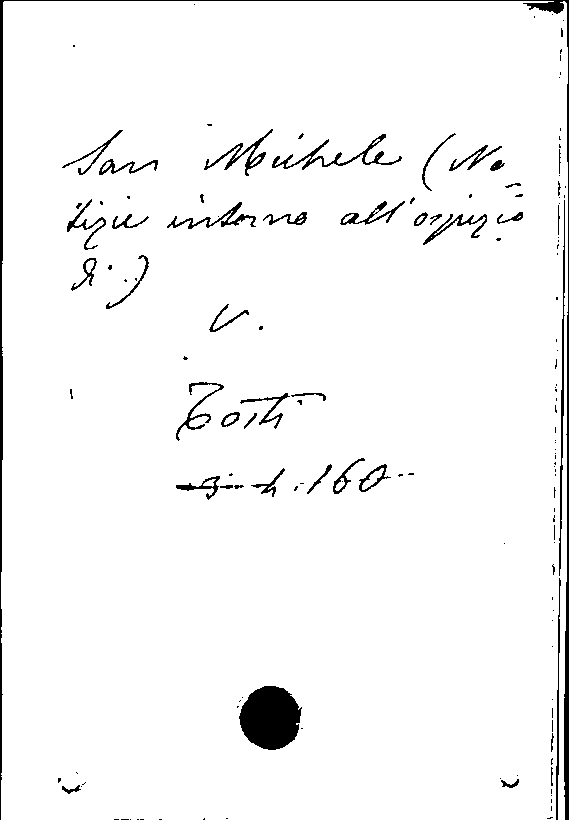 San Michele (No=
tizie intorno all'ospizio
di)
V.
Tosti
160